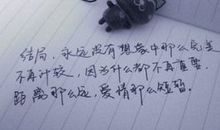 结局，永远没有想象中那么完美
不再计较，因为什么都不再重要
距离那么远，爱情那么短暂。